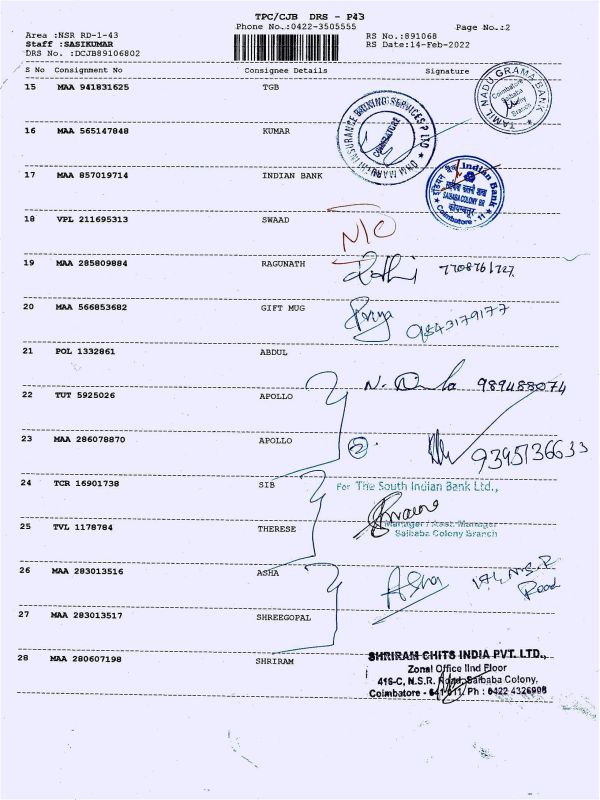 TPC/CJB DRS - P43
Phone No.:0422-3505555
Page No.:2
Area :NSR RD-1-43
Staff :SASIKUMAR
DRS No. :DCJB89106802
RS No.:891068
RS Date:14-Feb-2022
S No Consignment No Consignee Details Signature
15 MAA 941831625 TGB
TAMIL NADU GRAMA BANK
Coimbatore
Saibaba
Colony
Branch
16 MAA 565147848 KUMAR
INSURANCE BROKING SERVICES P LTD
COIMBATORE
17 MAA 857019714 INDIAN BANK
Indian Bank
SAIBABA COLONY BR
कोयम्बत्तूर
Coimbatore - 11
18 VPL 211695313 SWAAD
N/C
19 MAA 285809884 RAGUNATH
7708761727
20 MAA 566853682 GIFT MUG
Priya 9843179177
21 POL 1332861 ABDUL
22 TUT 5925026 APOLLO
9894888074
23 MAA 286078870 APOLLO
2. 9395136633
24 TCR 16901738 SIB
For The South Indian Bank Ltd.,
25 TVL 1178784 THERESE
Manager / Asst. Manager
Saibaba Colony Branch
26 MAA 283013516 ASHA
Asha N.S.R
Road
27 MAA 283013517 SHREEGOPAL
28 MAA 280607198 SHRIRAM
SHRIRAM CHITS INDIA PVT. LTD.,
Zonal Office IInd Floor
416-C, N.S.R. Road, Saibaba Colony,
Coimbatore - 641 011. Ph : 0422 4326906